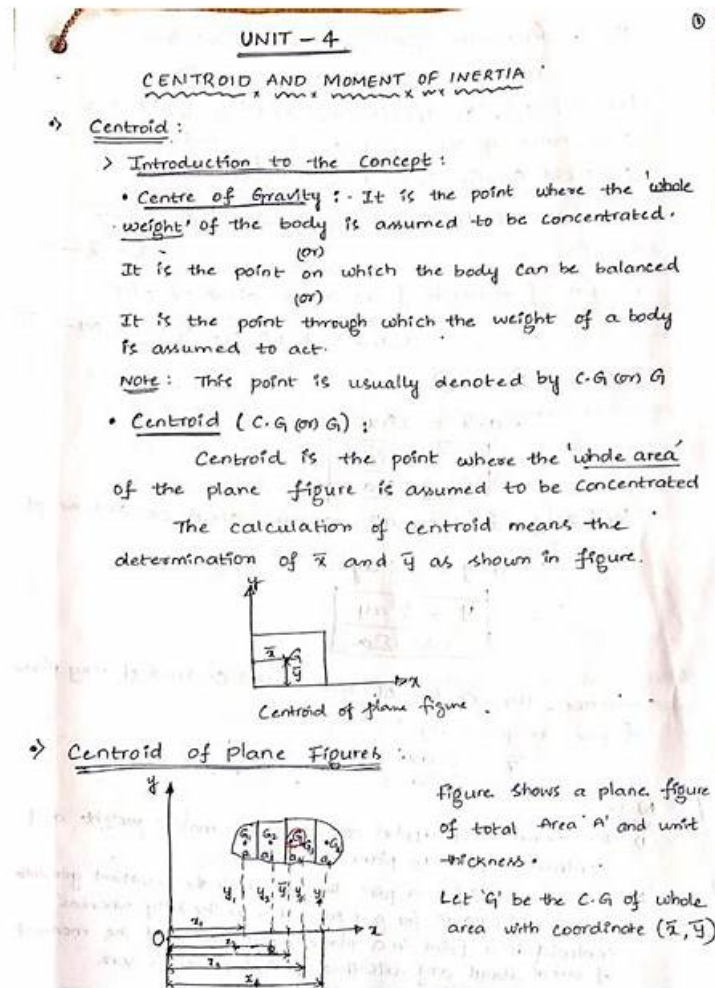 ①
UNIT - 4
CENTROID AND MOMENT OF INERTIA
Centroid :
> Introduction to the Concept :
• Centre of Gravity : - It is the point where the 'whole
weight' of the body is assumed to be concentrated.
(or)
It is the point on which the body can be balanced
(or)
It is the point through which the weight of a body
is assumed to act.
Note : This point is usually denoted by C.G (or) G
• Centroid (C.G (or) G) :
Centroid is the point where the 'whole area'
of the plane figure is assumed to be concentrated
The calculation of Centroid means the
determination of x̅ and y̅ as shown in figure.
y
x̅ G
y̅
x
Centroid of plane figure .
Centroid of Plane Figures :
y
Figure shows a plane figure
of total Area 'A' and unit
thickness.
Let 'G' be the C.G of whole
area with coordinate (x̅, y̅)
G₁ G₂ G G₃ G₄
y₁ y₂ y̅
x₁
O x
x₂
x₃
x₄